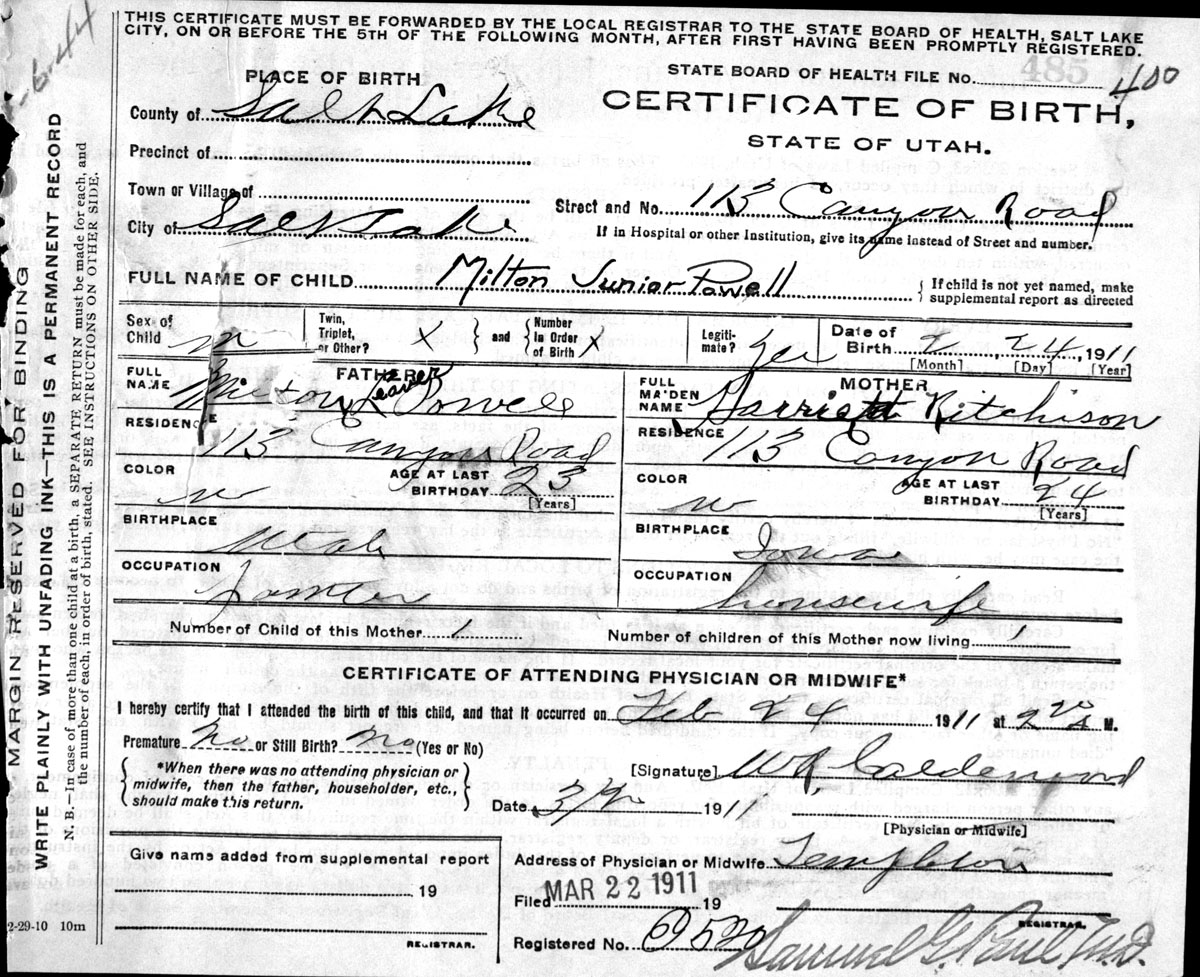 THIS CERTIFICATE MUST BE FORWARDED BY THE LOCAL REGISTRAR TO THE STATE BOARD OF HEALTH, SALT LAKE
CITY, ON OR BEFORE THE 5TH OF THE FOLLOWING MONTH, AFTER FIRST HAVING BEEN PROMPTLY REGISTERED.
6-44
PLACE OF BIRTH
STATE BOARD OF HEALTH FILE No. 485 400
County of Salt Lake
CERTIFICATE OF BIRTH,
STATE OF UTAH.
Precinct of
Town or Village of
Street and No. 113 Canyon Road
City of Salt Lake
If in Hospital or other Institution, give its name instead of Street and number.
FULL NAME OF CHILD Milton Junior Powell
{ If child is not yet named, make
supplemental report as directed
Sex of Child m
Twin, Triplet, or Other? X } and { Number In Order of Birth X
Legiti- mate? yes
Date of Birth 2, 24, 1911
[Month] [Day] [Year]
FATHER
FULL NAME Milton Powell
RESIDENCE
113 Canyon Road
COLOR
w
AGE AT LAST BIRTHDAY 23
[Years]
BIRTHPLACE
Utah
OCCUPATION
MOTHER
FULL MAIDEN NAME Harriett Ritchison
RESIDENCE
113 Canyon Road
COLOR
w
AGE AT LAST BIRTHDAY 24
[Years]
BIRTHPLACE
Iowa
OCCUPATION
housewife
Number of Child of this Mother 1
Number of children of this Mother now living 1
CERTIFICATE OF ATTENDING PHYSICIAN OR MIDWIFE*
I hereby certify that I attended the birth of this child, and that it occurred on Feb 24 1911 at 2 M.
Premature no or Still Birth? no (Yes or No)
{ *When there was no attending physician or
midwife, then the father, householder, etc.,
should make this return. }
[Signature] Calderwood
Date 191
[Physician or Midwife]
Give name added from supplemental report
19
REGISTRAR.
Address of Physician or Midwife Templeton
Filed MAR 22 1911 19
REGISTRAR.
Registered No. 9520
Samuel G. Paul, M.D.
2-29-10 10m
MARGIN RESERVED FOR BINDING
WRITE PLAINLY WITH UNFADING INK—THIS IS A PERMANENT RECORD
N. B.—In case of more than one child at a birth, a SEPARATE RETURN must be made for each, and
the number of each, in order of birth, stated. SEE INSTRUCTIONS ON OTHER SIDE.